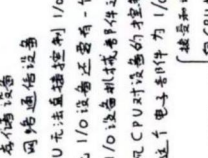 存储设备
网络通信设备
U无法直接控制I/
I/O设备还要有一
/O设备机械部件
现CPU对设备的控
这个电子部件为I/
接受和
向CPU